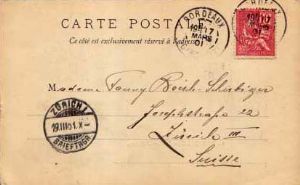 CARTE POSTALE
Ce côté est exclusivement réservé à l'adresse
BORDEAUX
17
MARS
01
Madame Fanny
Josephstrasse 22
Zürich III
Suisse
ZÜRICH
19.III.01.X-
BRIEFTRGR